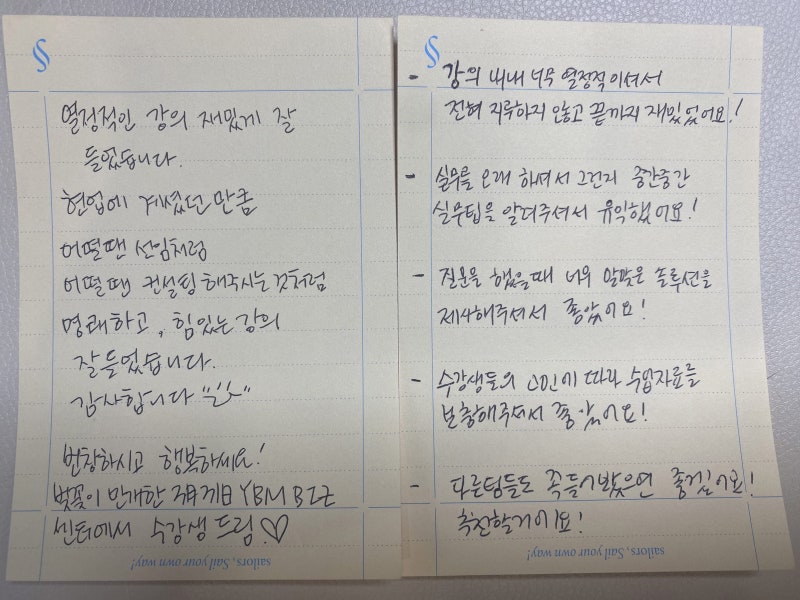 열정적인 강의 재밌게 잘
들었습니다.
현업에 계셨던 만큼
어떨땐 선임처럼
어떨땐 컨설팅해주시는것처럼
명쾌하고, 힘있는 강의
잘 들었습니다.
감사합니다
번창하시고 행복하세요!
벚꽃이 만개한 YBM BIZ
센터에서 수강생 드림.♡
sailors, Sail your own way!
- 강의 내내 너무 열정적이셔서
전혀 지루하지 않고 끝까지 재밌었어요!
- 실무를 오래 하셔서 그런지 중간중간
실무팁을 알려주셔서 유익했어요!
- 질문을 했을때 너무 알맞은 솔루션을
제시해주셔서 좋았어요!
- 수강생들의 니즈에 따라 수업자료를
보충해주셔서 좋았어요!
- 다른팀들도 꼭들어봤으면 좋겠어요!
추천할거에요!
sailors, Sail your own way!